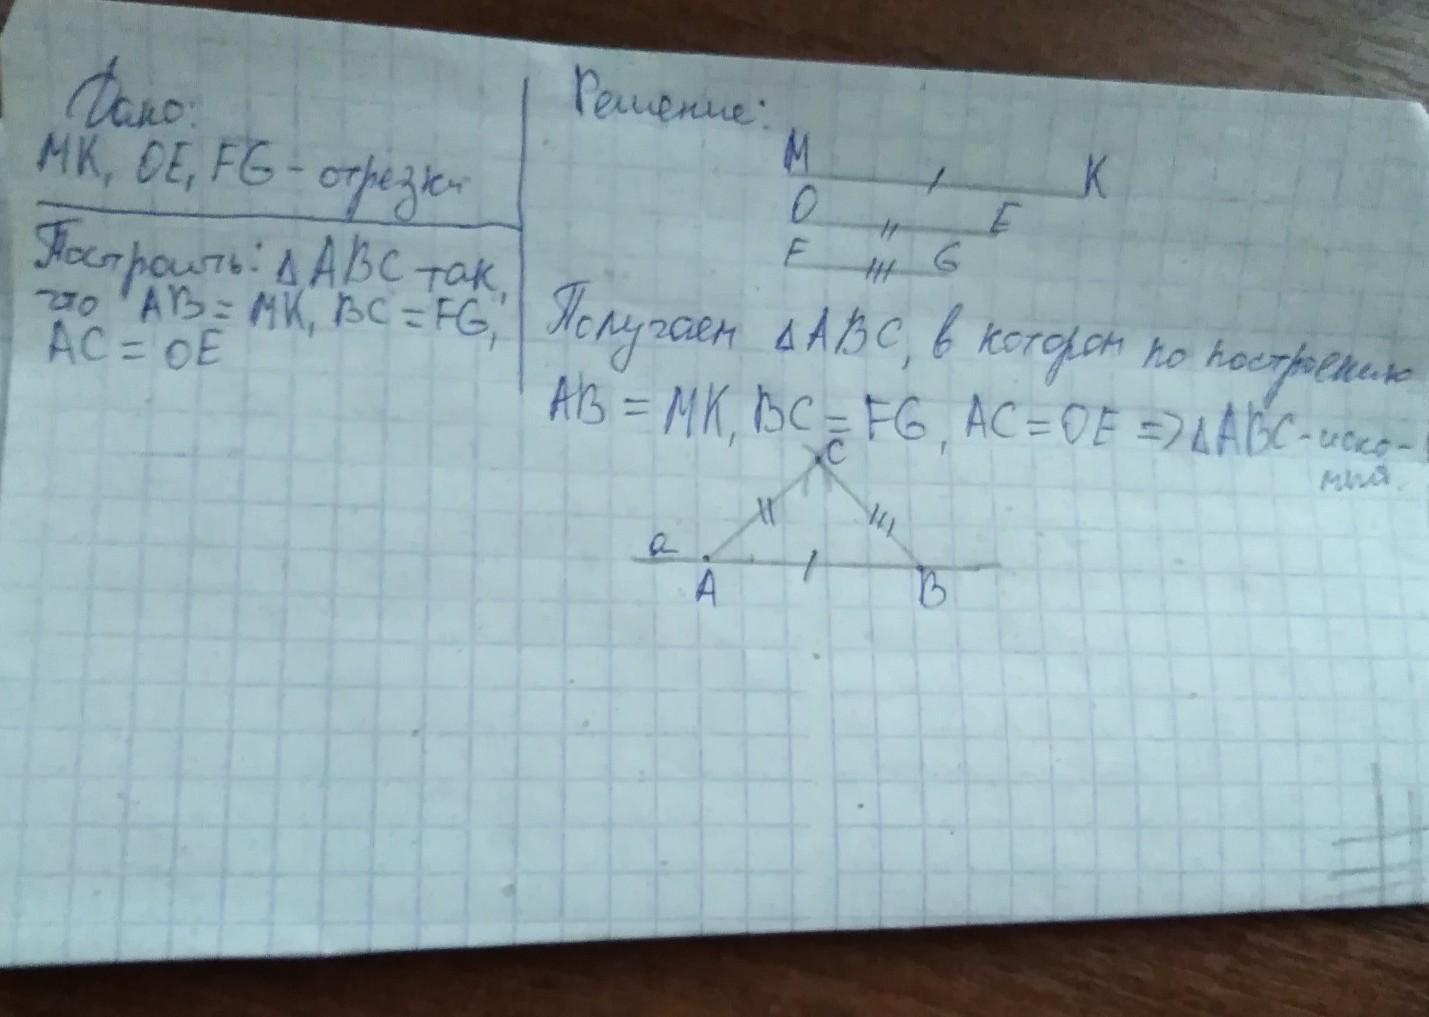 Дано:
MK, OE, FG - отрезки
Построить: △ABC так,
что AB = MK, BC = FG,
AC = OE
Решение:
M K
O E
F G
Получаем △ABC, в котором по построению
AB = MK, BC = FG, AC = OE => △ABC - иско-
мый.
C
a
A B